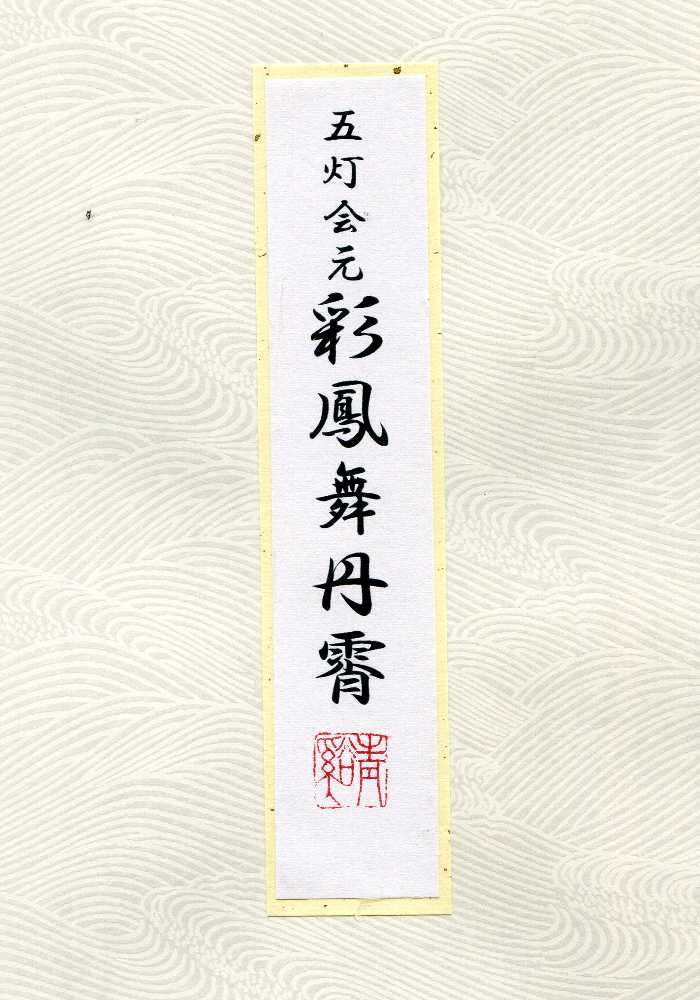 五灯会元彩鳳舞丹霄
青谿